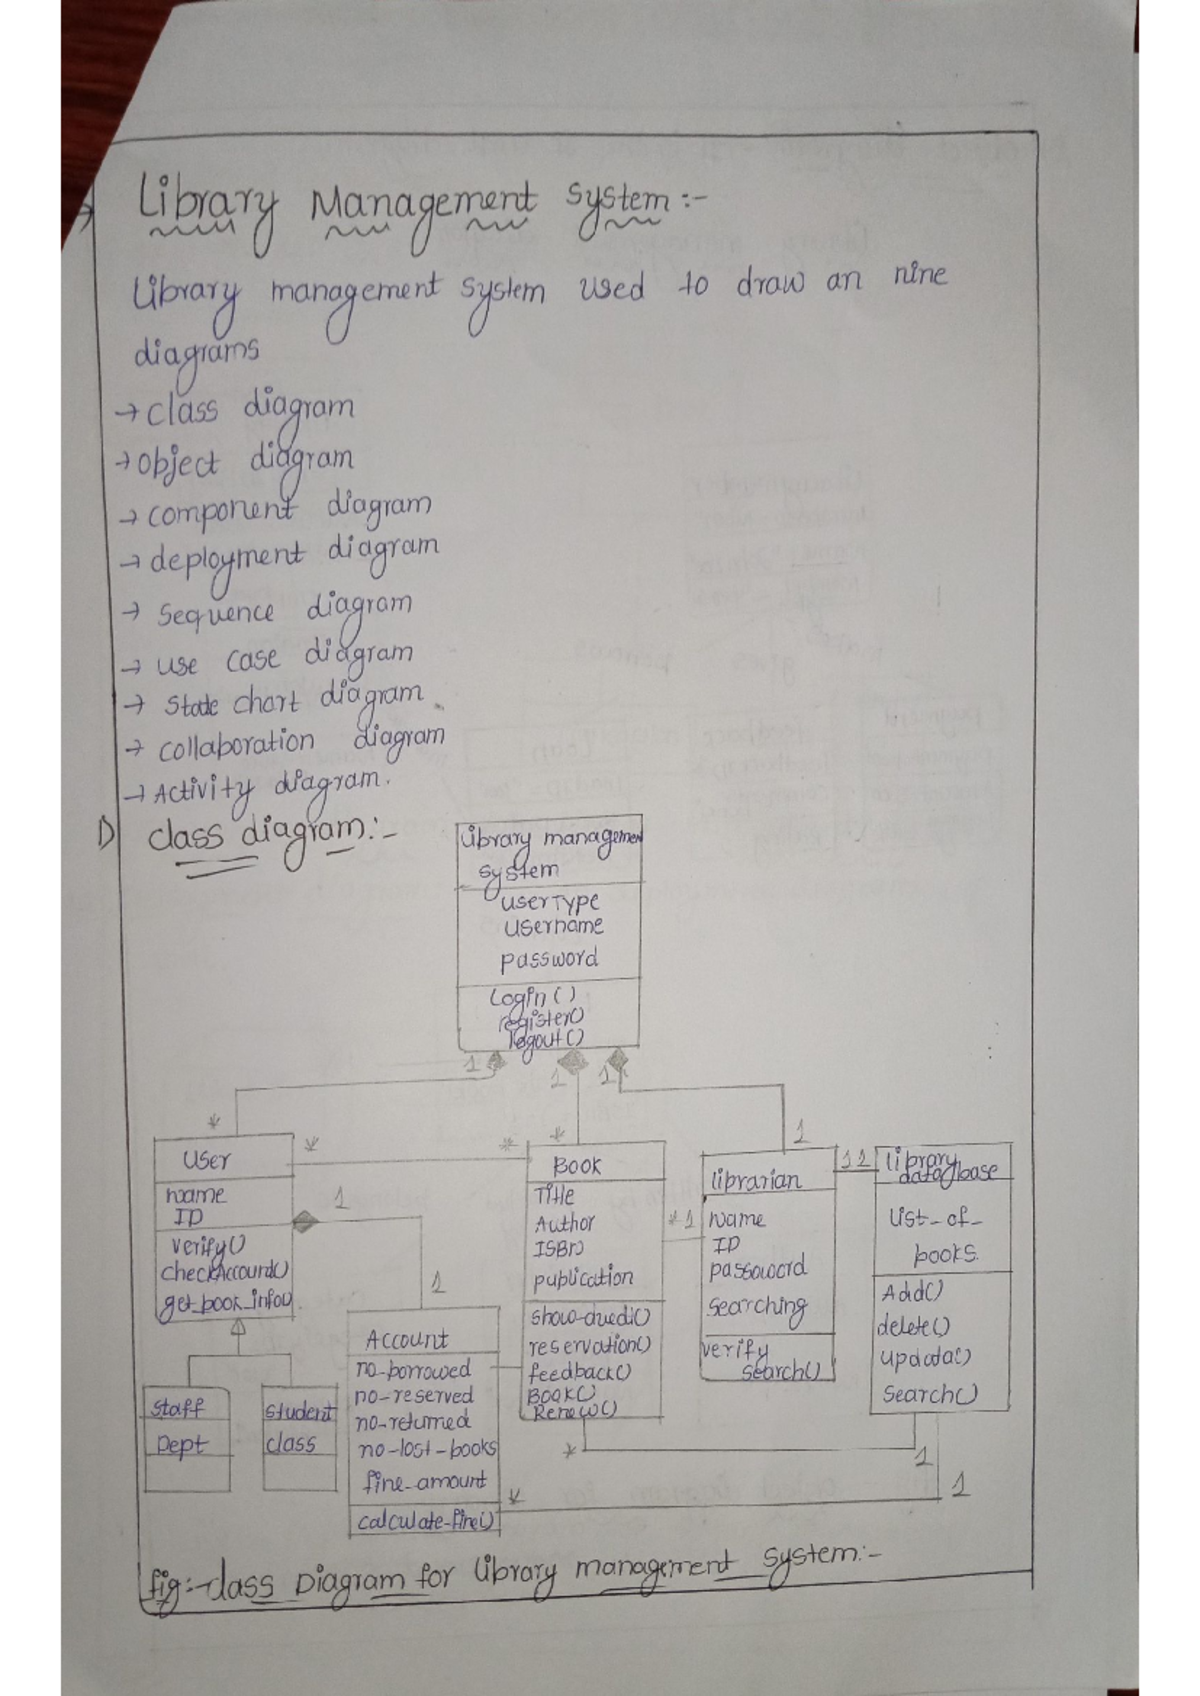 Library Management System:-
Library management system used to draw an nine
diagrams
→ class diagram
→ object diagram
→ component diagram
→ deployment diagram
→ Sequence diagram
→ use case diagram
→ State chart diagram
→ collaboration diagram
→ Activity diagram.
1) class diagram:-
Library management
system
userType
Username
password
Login()
register()
logout()
1
1
1
*
*
*
*
1
User
Name
ID
verify()
checkAccount()
get_book_info()
1
1
Staff
Dept
Student
class
Account
no-borrowed
no-reserved
no-returned
no-lost-books
fine-amount
calculate-fine()
Book
Title
Author
ISBN
publication
show-duedt()
reservation()
feedback()
BOOK()
Renew()
* 1
librarian
Name
ID
password
Searching
verify
Search()
1 1
library
database
List-of-
books.
Add()
delete()
update()
Search()
*
1
*
1
fig:-class Diagram for Library management system:-